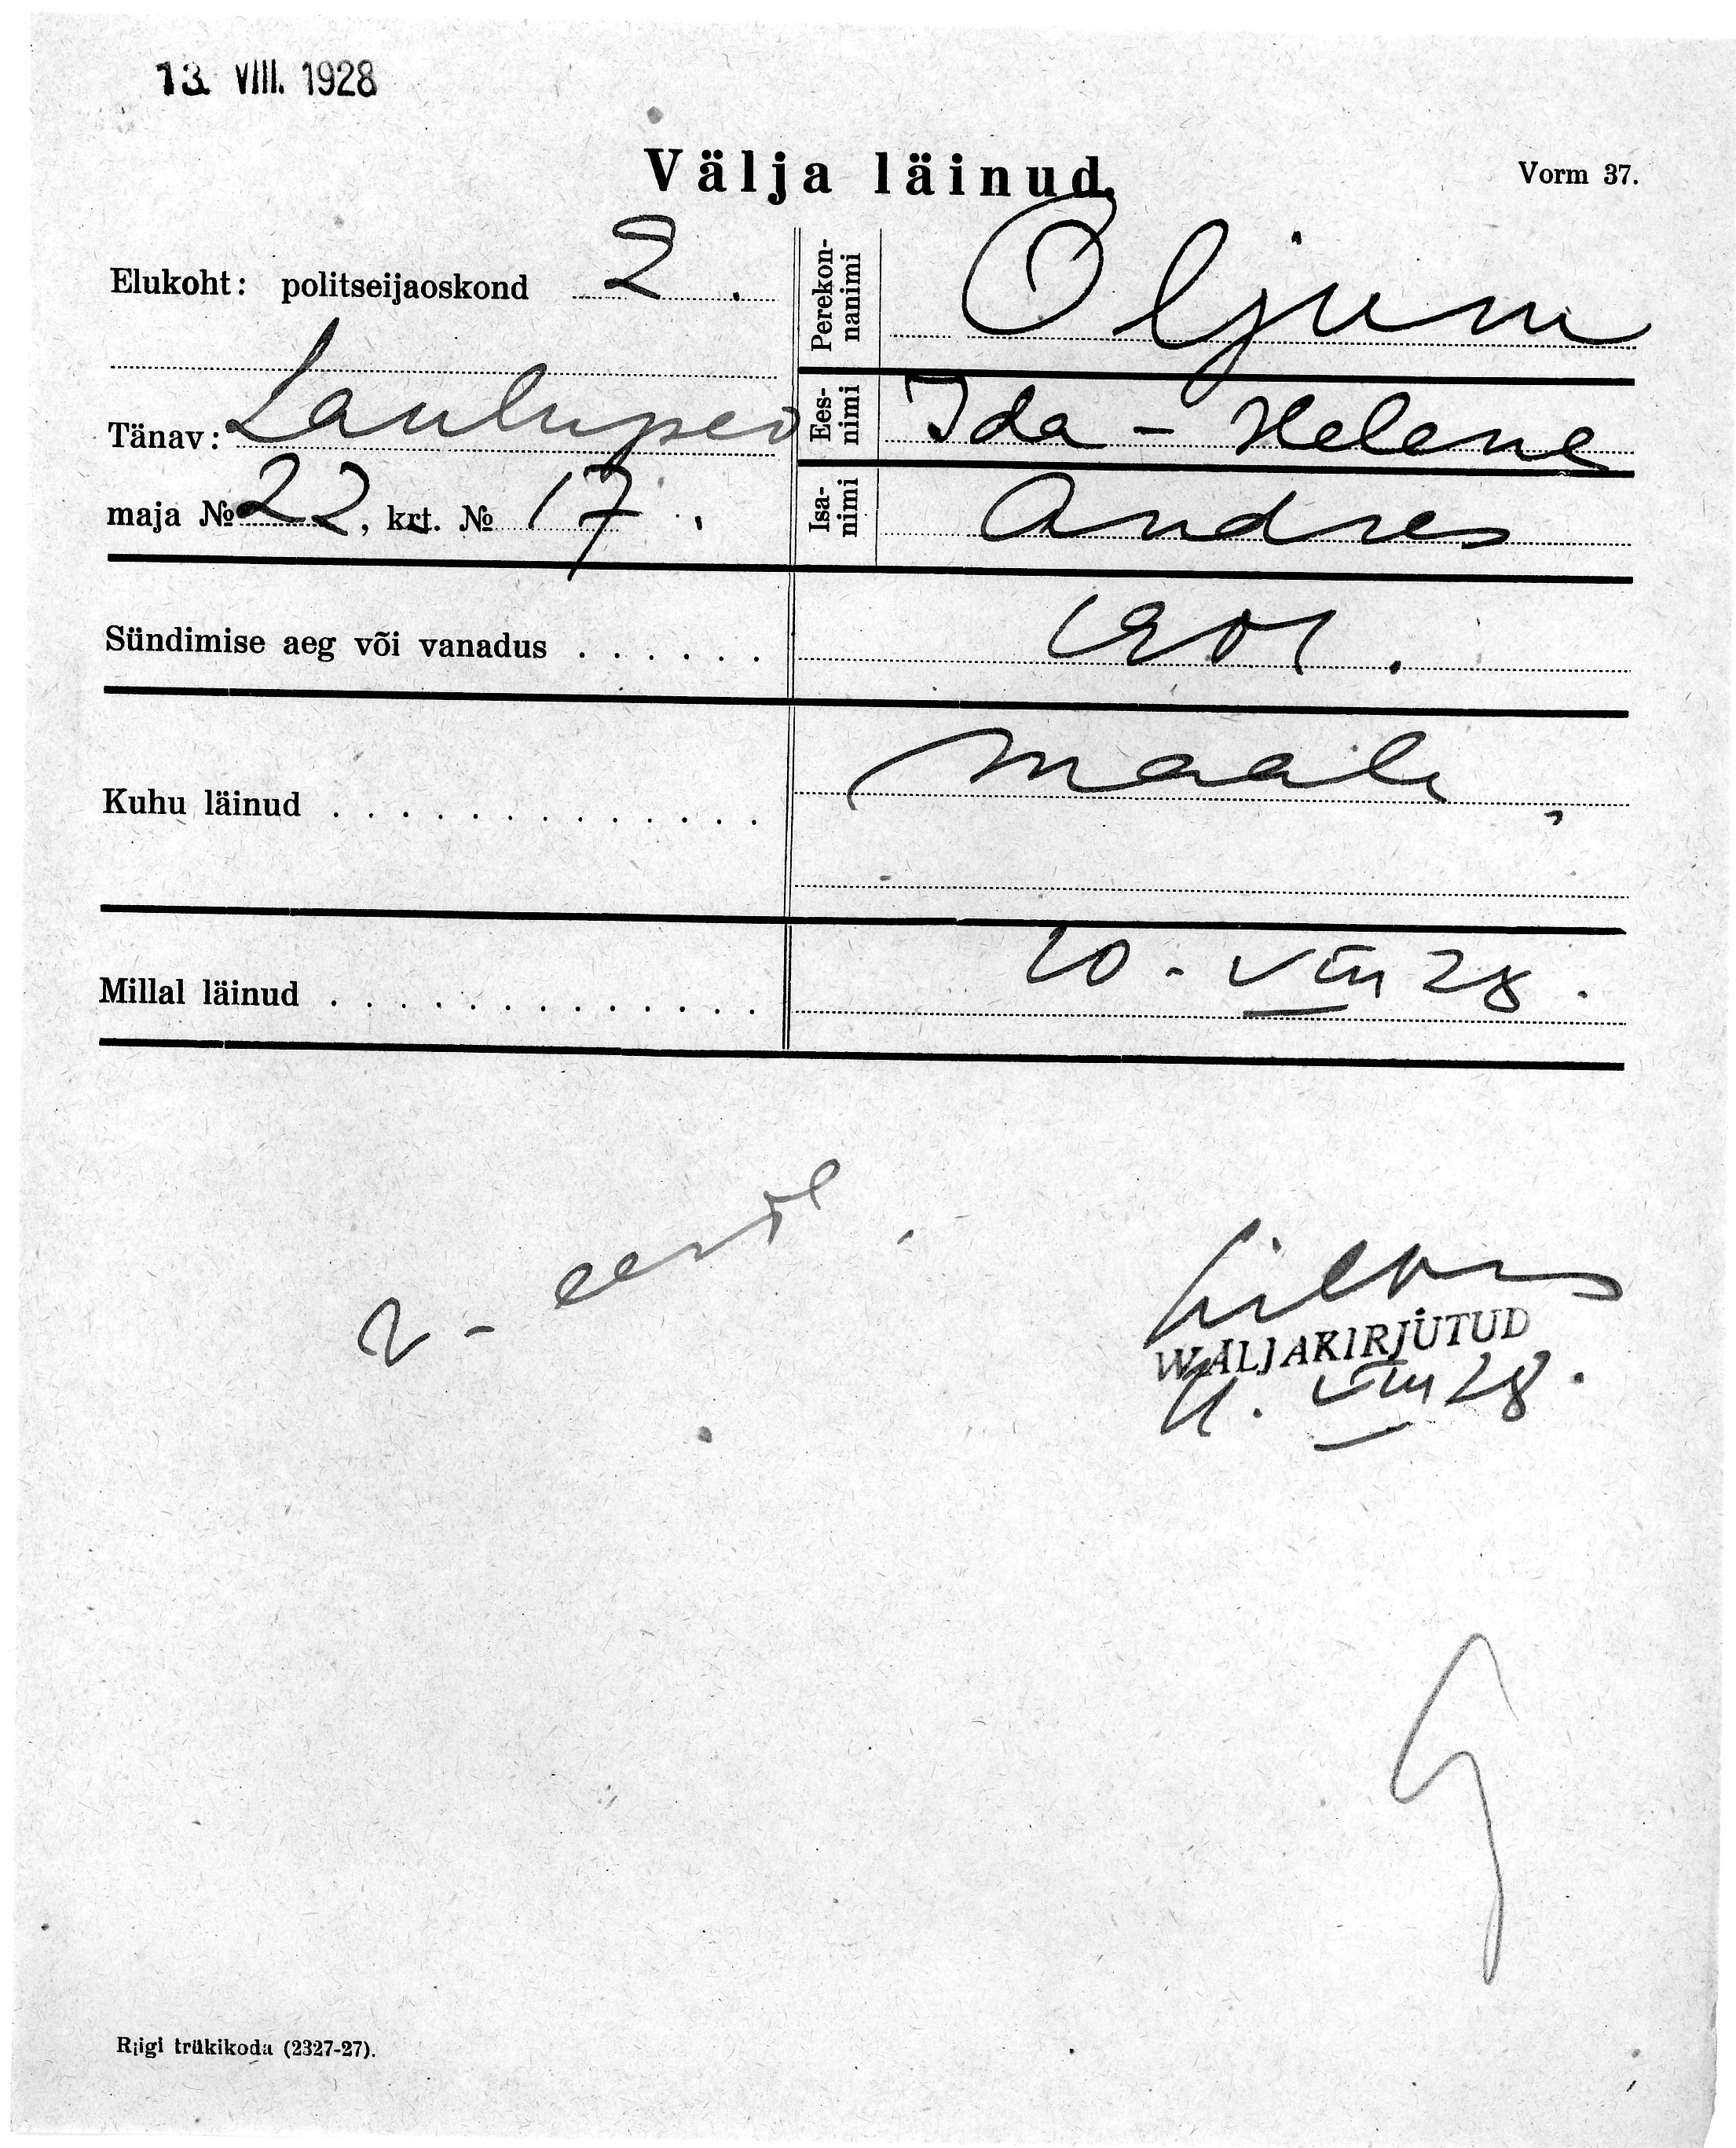 13. VIII. 1928
Välja läinud.
Vorm 37.
Elukoht: politseijaoskond 2.
Tänav: Laulupeo
maja № 22, krt. № 17.
Perekon-
nanimi
Oljum
Ees-
nimi
Ida-Helene
Isa-
nimi
Andres
Sündimise aeg või vanadus . . . . . . 1901.
Kuhu läinud . . . . . . . . . . . . . maale,
Millal läinud . . . . . . . . . . . . . 10. VIII 28.
WÄLJAKIRJUTUD
11. VIII 28.
Riigi trükikoda (2327-27).